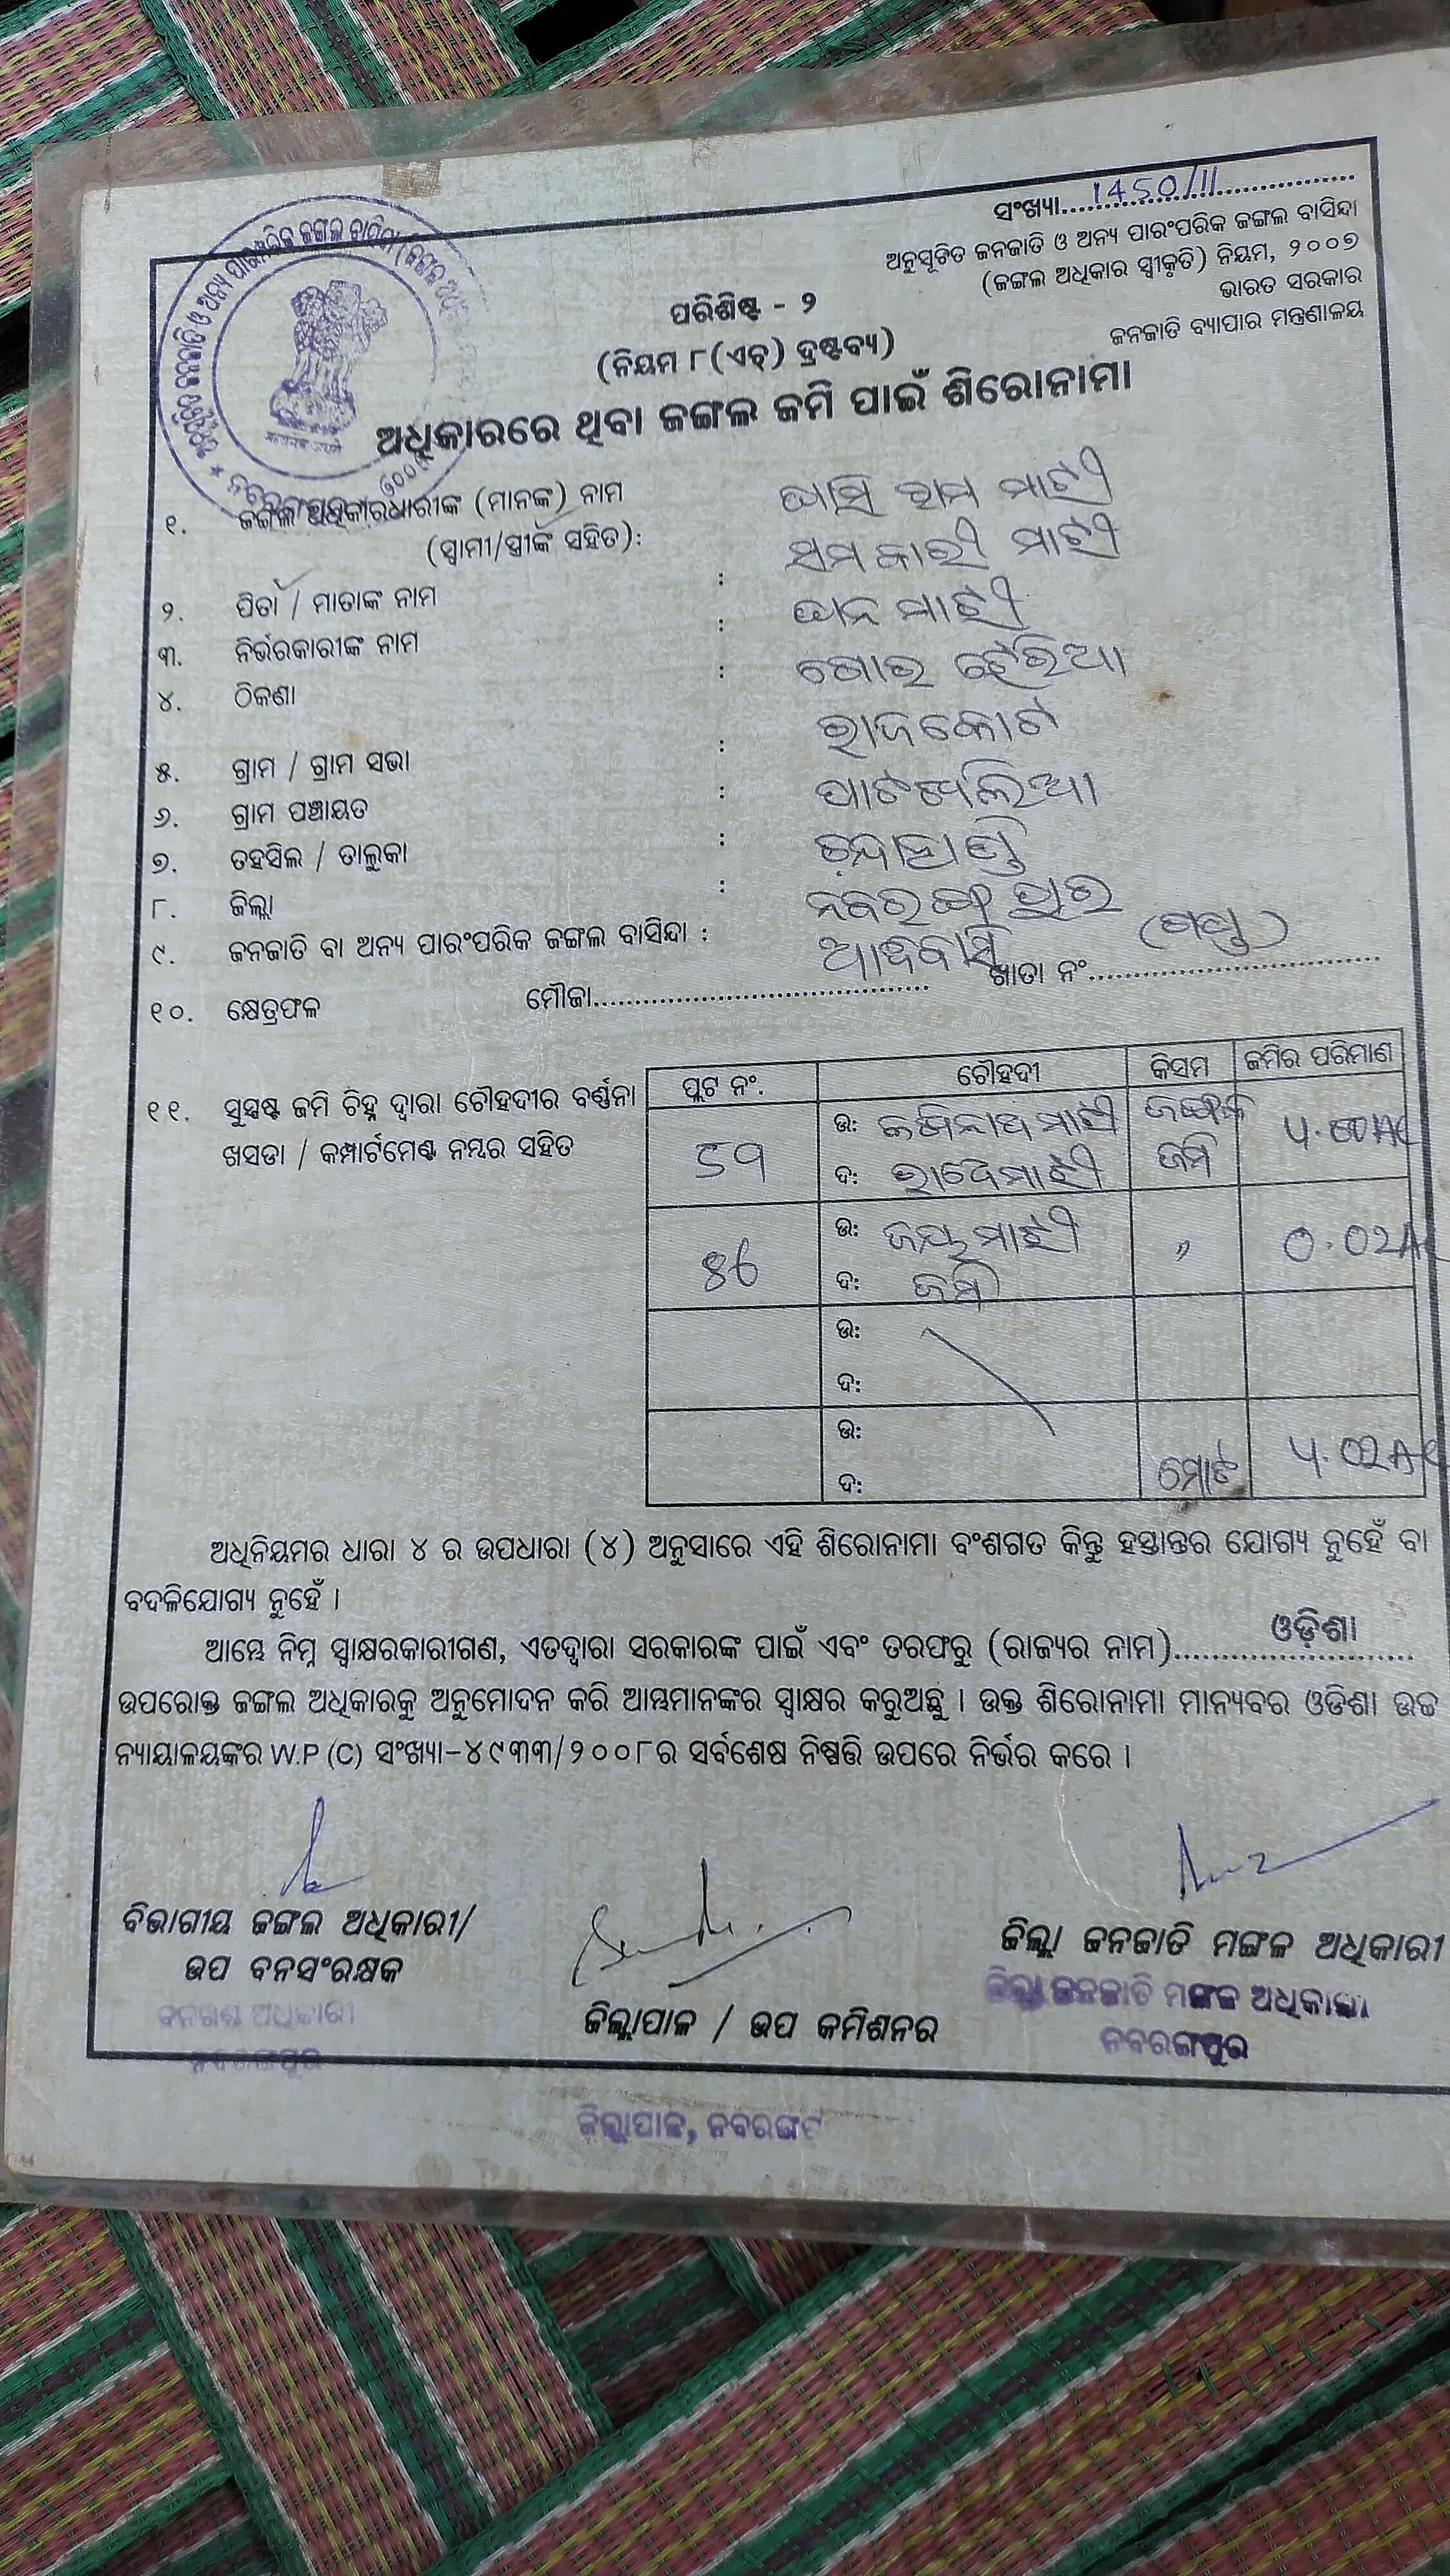 ସଂଖ୍ୟା 1450/11
ଅନୁସୂଚିତ ଜନଜାତି ଓ ଅନ୍ୟ ପାରଂପରିକ ଜଙ୍ଗଲ ବାସିନ୍ଦା
(ଜଙ୍ଗଲ ଅଧିକାର ସ୍ୱୀକୃତି) ନିୟମ, ୨୦୦୭
ଭାରତ ସରକାର
ଜନଜାତି ବ୍ୟାପାର ମନ୍ତ୍ରଣାଳୟ
ପରିଶିଷ୍ଟ - ୨
(ନିୟମ ୮(ଏଚ୍) ଦ୍ରଷ୍ଟବ୍ୟ)
ଅଧିକାରରେ ଥିବା ଜଙ୍ଗଲ ଜମି ପାଇଁ ଶିରୋନାମା
୧. ଜଙ୍ଗଲ ଅଧିକାରଧାରୀଙ୍କ (ମାନଙ୍କ) ନାମ ରାମ ମାଝୀ
(ସ୍ୱାମୀ/ସ୍ତ୍ରୀଙ୍କ ସହିତ): ମାଝୀ
୨. ପିତା / ମାତାଙ୍କ ନାମ : ମାଝୀ
୩. ନିର୍ଭରକାରୀଙ୍କ ନାମ :
୪. ଠିକଣା :
ରାଜକୋଟ
୫. ଗ୍ରାମ / ଗ୍ରାମ ସଭା :
୬. ଗ୍ରାମ ପଞ୍ଚାୟତ :
୭. ତହସିଲ / ତାଲୁକା :
୮. ଜିଲ୍ଲା : ନବରଙ୍ଗପୁର
୯. ଜନଜାତି ବା ଅନ୍ୟ ପାରଂପରିକ ଜଙ୍ଗଲ ବାସିନ୍ଦା : ଆଦିବାସୀ
୧୦. କ୍ଷେତ୍ରଫଳ ମୌଜା ଖାତା ନଂ
୧୧. ସୁସ୍ପଷ୍ଟ ଜମି ଚିହ୍ନ ଦ୍ୱାରା ଚୌହଦୀର ବର୍ଣ୍ଣନା
ଖସଡା / କମ୍ପାର୍ଟମେଣ୍ଟ ନମ୍ବର ସହିତ
ପ୍ଲଟ ନଂ. ଚୌହଦୀ କିସମ ଜମିର ପରିମାଣ
ଉ: ମାଝୀ ଜଙ୍ଗଲ
ଦ: ମାଝୀ ଜମି
ଉ: ଜୟ ମାଝୀ " 0.02Ac
ଦ: ଜମି
ଉ:
ଦ:
ଉ:
ଦ: ମୋଟ
ଅଧିନିୟମର ଧାରା ୪ ର ଉପଧାରା (୪) ଅନୁସାରେ ଏହି ଶିରୋନାମା ବଂଶଗତ କିନ୍ତୁ ହସ୍ତାନ୍ତର ଯୋଗ୍ୟ ନୁହେଁ ବା
ବଦଳିଯୋଗ୍ୟ ନୁହେଁ ।
ଆମ୍ଭେ ନିମ୍ନ ସ୍ୱାକ୍ଷରକାରୀଗଣ, ଏତଦ୍ୱାରା ସରକାରଙ୍କ ପାଇଁ ଏବଂ ତରଫରୁ (ରାଜ୍ୟର ନାମ) ଓଡ଼ିଶା
ଉପରୋକ୍ତ ଜଙ୍ଗଲ ଅଧିକାରକୁ ଅନୁମୋଦନ କରି ଆମ୍ଭମାନଙ୍କର ସ୍ୱାକ୍ଷର କରୁଅଛୁ । ଉକ୍ତ ଶିରୋନାମା ମାନ୍ୟବର ଓଡିଶା ଉଚ୍ଚ
ନ୍ୟାୟାଳୟଙ୍କର W.P (C) ସଂଖ୍ୟା-୪୯୩୩/୨୦୦୮ର ସର୍ବଶେଷ ନିଷ୍ପତ୍ତି ଉପରେ ନିର୍ଭର କରେ ।
ବିଭାଗୀୟ ଜଙ୍ଗଲ ଅଧିକାରୀ/
ଉପ ବନସଂରକ୍ଷକ
ବନଖଣ୍ଡ ଅଧିକାରୀ
ନବରଙ୍ଗପୁର
ଜିଲ୍ଲାପାଳ / ଉପ କମିଶନର
ଜିଲ୍ଲାପାଳ, ନବରଙ୍ଗପୁର
ଜିଲ୍ଲା ଜନଜାତି ମଙ୍ଗଳ ଅଧିକାରୀ
ଜିଲ୍ଲା ଜନଜାତି ମଙ୍ଗଳ ଅଧିକାରୀ
ନବରଙ୍ଗପୁର